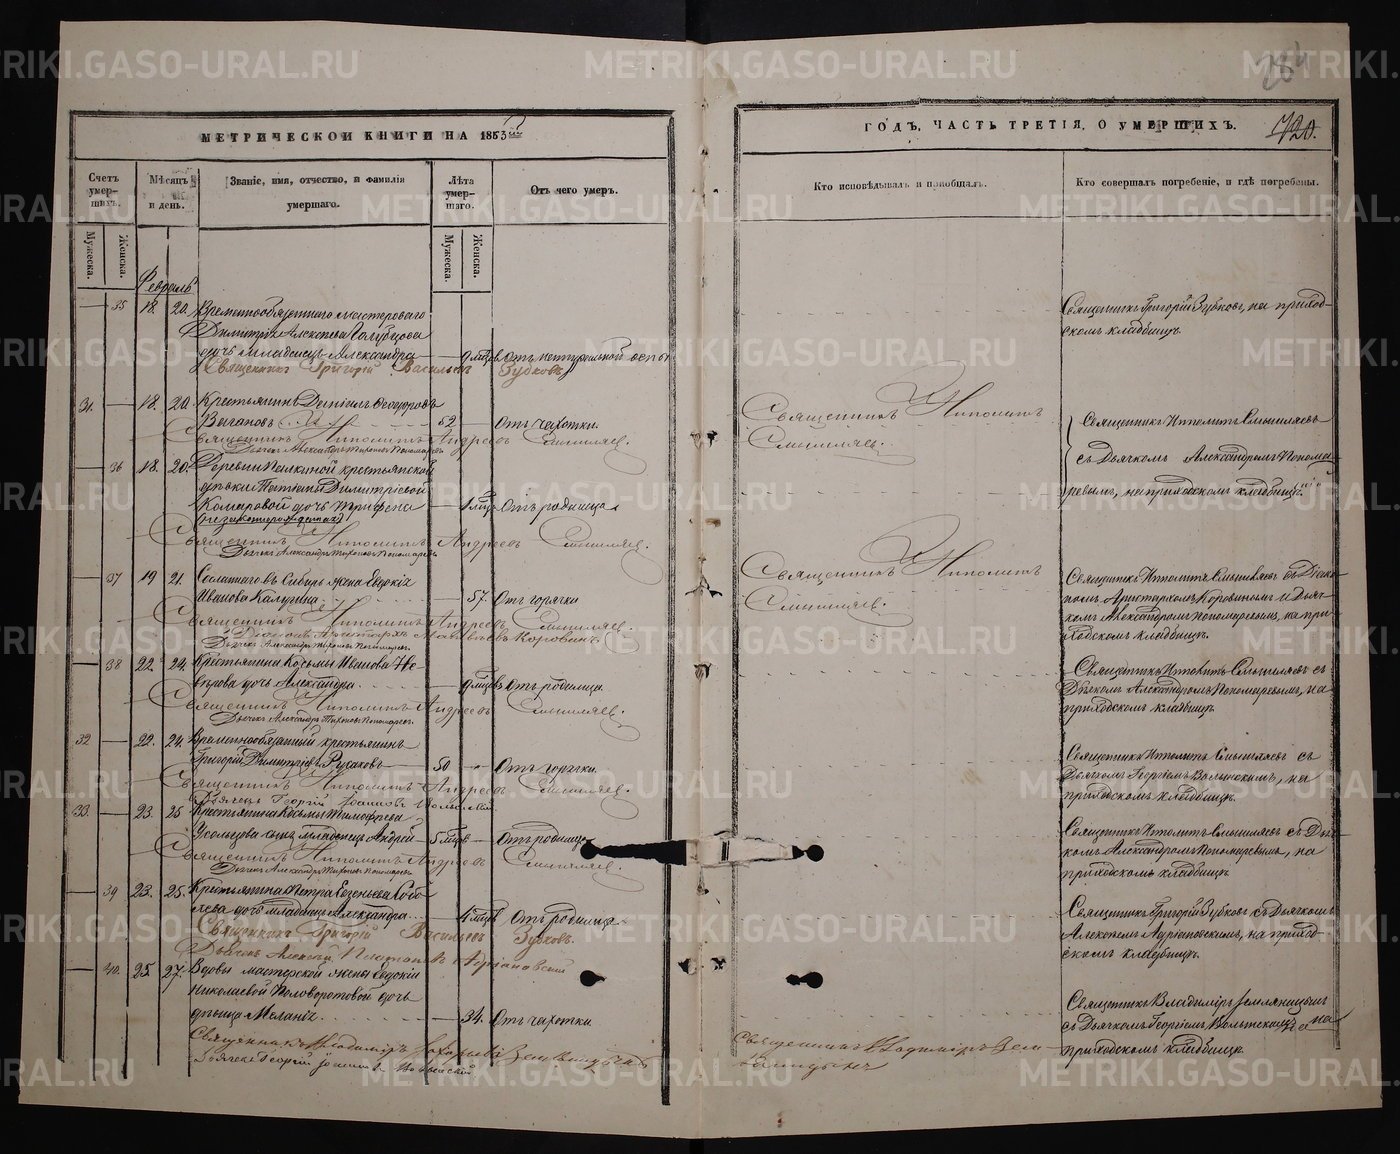 МЕТРИЧЕСКОЙ КНИГИ НА 1863
Счетъ умер-шихъ.
Мужеска.
Женска.
Мѣсяцъ и день.
Званіе, имя, отчество, и фамилія умершаго.
Лѣта умер-шаго.
Мужеска.
Женска.
Отъ чего умеръ.
Февраль
35 18. 20. Временнообязаннаго мастероваго
Димитрія Алексѣева Голубцова
дочь младенецъ Александра 9 мцовъ Отъ натуральной оспы
Священникъ Григорій Васильевъ Зубковъ
31. 18. 20 Крестьянинъ Даніилъ Ѳеодоровъ
Вагановъ 52 Отъ чахотки.
Священникъ Ипполитъ Андреевъ Смышляевъ.
Дьячекъ Александръ Тихоновъ Пономаревъ
36 18. 20. Деревни Палкиной крестьянской
дѣвки Татьяны Димитріевой
Комаровой дочь Трифена 1 мцъ Отъ родимца
(незаконнорожденная)
Священникъ Ипполитъ Андреевъ Смышляевъ.
Дьячекъ Александръ Тихоновъ Пономаревъ
37 19 21 Сосланнаго въ Сибирь жена Евдокія
Иванова Калугина 57. Отъ горячки
Священникъ Ипполитъ Андреевъ Смышляевъ.
Діаконъ Аристархъ Матвѣевъ Коровинъ.
Дьячекъ Александръ Тихоновъ Пономаревъ.
38 22. 24. Крестьянина Козьмы Иванова
дочь Александра. 9 мцовъ Отъ родимца.
Священникъ Ипполитъ Андреевъ Смышляевъ.
Дьячекъ Александръ Тихоновъ Пономаревъ.
32 22. 24. Временнообязанный крестьянинъ
Григорій Димитріевъ Русаковъ 50 Отъ горячки.
Священникъ Ипполитъ Андреевъ Смышляевъ.
Дьячекъ Георгій Іоанновъ Волынскій
33. 23. 25 Крестьянина Козьмы Тимофѣева
Усольцова сынъ младенецъ Андрей 5 мцовъ Отъ родимца
Священникъ Ипполитъ Андреевъ Смышляевъ.
Дьячекъ Александръ Тихоновъ Пономаревъ
39 23. 25. Крестьянина Петра Евгеньева
дочь младенецъ Александра. 4 мцовъ Отъ родимца
Священникъ Григорій Васильевъ Зубковъ.
Дьячекъ Алексѣй Платоновъ Адріановскій
40. 25. 27. Вдовы мастерской жены Евдокіи
Николаевой Половоротовой дочь
дѣвица Меланія. 34. Отъ чахотки
Священникъ Владиміръ Захаровъ Земляницынъ
Дьячекъ Георгій Іоанновъ Волынскій
ГОДЪ, ЧАСТЬ ТРЕТІЯ, О УМЕРШИХЪ.
720.
284
Кто исповѣдывалъ и пріобщалъ.
Кто совершалъ погребеніе, и гдѣ погребены.
Священникъ Григорій Зубковъ, на приход-
скомъ кладбищѣ.
Священникъ Ипполитъ
Смышляевъ.
Священникъ Ипполитъ Смышляевъ
съ Дьячкомъ Александромъ Понома-
ревымъ, на приходскомъ кладбищѣ.
Священникъ Ипполитъ
Смышляевъ.
Священникъ Ипполитъ Смышляевъ съ Діако-
номъ Аристархомъ Коровинымъ и Дьяч-
комъ Александромъ Пономаревымъ, на при-
ходскомъ кладбищѣ.
Священникъ Ипполитъ Смышляевъ съ
Дьячкомъ Александромъ Пономаревымъ, на
приходскомъ кладбищѣ
Священникъ Ипполитъ Смышляевъ съ
Дьячкомъ Георгіемъ Волынскимъ, на
приходскомъ кладбищѣ.
Священникъ Ипполитъ Смышляевъ съ Дьяч-
комъ Александромъ Пономаревымъ, на
приходскомъ кладбищѣ
Священникъ Григорій Зубковъ съ Дьячкомъ
Алексѣемъ Адріановскимъ, на приход-
скомъ кладбищѣ.
Священникъ Владиміръ Земляницынъ
съ Дьячкомъ Георгіемъ Волынскимъ на
приходскомъ кладбищѣ
Священникъ Владиміръ Зем-
ляницынъ
METRIKI.GASO-URAL.RU